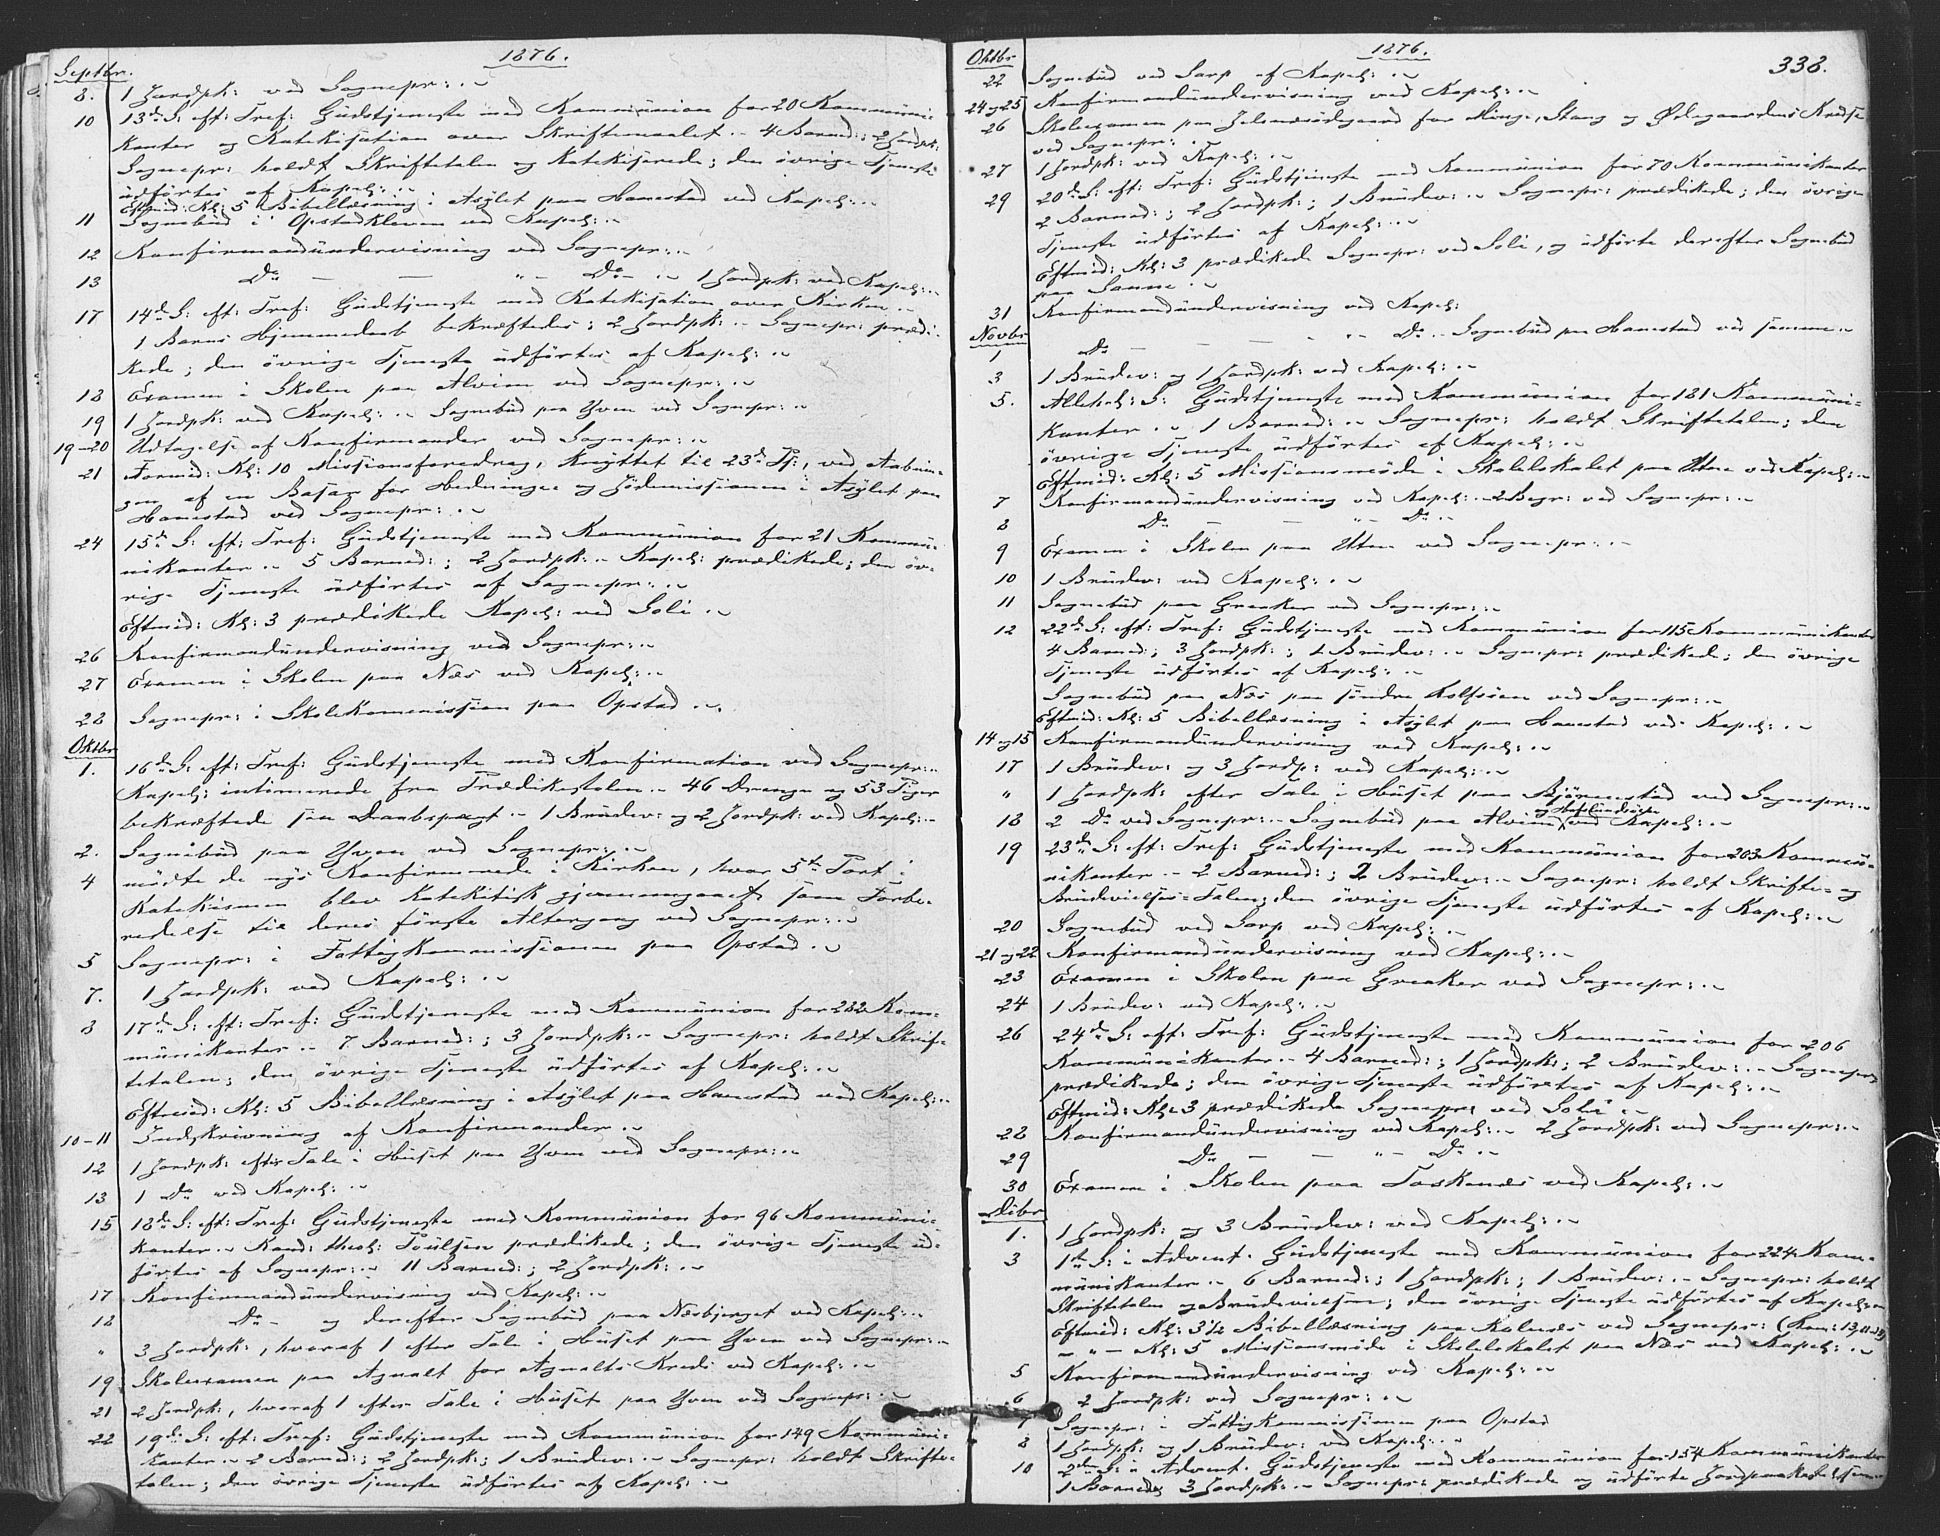 1876.
Septbr.
8. 1 Jordpk: ved Sognepr: .
10 13de S: eft: Tref: Gudstjeneste med Kommunion for 20 Kommuni-
kanter og Katekisation over Skriftemaalet. - 4 Barned:; 2 Jordpk:
Sognepr: holdt Skriftetalen og Katekiserede; den övrige Tjeneste
udförtes af Kapel: .
Eftmid: Kl: 5 Bibellæsning i Asylet paa Hanestad ved Kapel: .
11 Sognebud i Opstadkleven ved Kapel: .
12 Konfirmandundervisning ved Sognepr: .
13 Do — — " - Do - . 1 Jordpk: ved Kapel: .
17 14de S: eft: Tref: Gudstjeneste med Katekisation over Kirken .
1 Barns Hjemmedaab bekræftedes; 2 Jordpk: - Sognepr: prædi-
kede; den övrige Tjeneste udförtes af Kapel: .
18 Examen i Skolen paa Alvim ved Sognepr: .
19 1 Jordpk: ved Kapel: . Sognebud paa Yven ved Sognepr: .
19-20 Udtagelse af Konfirmander ved Sognepr: .
21 Formid: Kl: 10 Missionsforedrag, knyttet til 23de Ps:, ved Aabnin-
gen af en Basar for Hedninge og Jödemissionen i Asylet paa
Hanestad ved Sognepr: .
24 15de S: eft: Tref: Gudstjeneste med Kommunion for 21 Kommu-
nikanter . 5 Barned:; 2 Jordpk: . Kapel: prædikede; den öv-
rige Tjeneste udförtes af Sognepr: .
Eftmid: Kl: 3 prædikede Kapel: ved Soli .
26 Konfirmandundervisning ved Sognepr: .
27 Examen i Skolen paa Næs ved Kapel: .
28 Sognepr: i Skolekommission paa Opstad .
Oktbr
1. 16de S: eft: Tref: Gudstjeneste med Konfirmation ved Sognepr: .
Kapel: intimerede fra Prædikestolen . 46 Drenge og 53 Piger
bekræftede sin Daabspagt . 1 Brudev: og 2 Jordpk: ved Kapel: .
2. Sognebud paa Yven ved Sognepr: .
4 mödte de nys Konfirmerede i Kirken, hvor 5te Part i
Katekismen blev katekitisk gjennemgaaet som Forbe-
redelse til deres förste Altergang ved Sognepr: .
5 Sognepr: i Fattigkommissionen paa Opstad .
7. 1 Jordpk: ved Kapel: .
8 17de S: eft: Tref: Gudstjeneste med Kommunion for 282 Kom-
munikanter . 7 Barned:; 3 Jordpk: . Sognepr: holdt Skrif-
tetalen; den övrige Tjeneste udförtes af Kapel: .
Eftmid: Kl: 5 Bibellæsning i Asylet paa Hanestad ved Kapel: .
10-11 Indskrivning af Konfirmander .
12 1 Jordpk: efter Tale i Huset paa Yven ved Sognepr: .
13 1 Do ved Kapel: .
15 18de S: eft: Tref: Gudstjeneste med Kommunion for 96 Kommuni-
kanter . Kand: theol: Poulsen prædikede; den övrige Tjeneste ud-
förtes af Sognepr: . 11 Barned:; 2 Jordpk: .
17 Konfirmandundervisning ved Kapel: .
18 Do - og derefter Sognebud paa Næsbjerget ved Kapel: .
" 3 Jordpk:, hvoraf 1 efter Tale i Huset paa Yven ved Sognepr: .
19 Skolexamen paa Agnalt for Agnalts Kreds ved Kapel: .
21 2 Jordpk:, hvoraf 1 efter Tale i Huset paa Yven ved Sognepr: .
22 19de S: eft: Tref: Gudstjeneste med Kommunion for 149 Kommuni-
kanter . 2 Barned:; 2 Jordpk:; 1 Brudev: . Sognepr: holdt Skrifte-
talen; den övrige Tjeneste udförtes af Kapel: .
1876. 338.
Oktbr
22 Sognebud ved Sarp af Kapel: .
24 og 25 Konfirmandundervisning ved Kapel: .
26 Skolexamen paa for Hinge, Stang og Ödegaardens Kredse
ved Sognepr: .
27 1 Jordpk: ved Kapel: .
29 20de S: eft: Tref: Gudstjeneste med Kommunion for 70 Kommunikanter
2 Barned:; 2 Jordpk:; 1 Brudev: . Sognepr: prædikede; den övrige
Tjeneste udförtes af Kapel: .
Eftmid: Kl: 3 prædikede Sognepr: ved Soli, og udförte derefter Sognebud
paa Sanne .
31 Konfirmandundervisning ved Kapel:
Novbr
1 Do — — - " - Do . Sognebud paa Hanestad ved samme .
3 1 Brudev: og 1 Jordpk: ved Kapel: .
5. Allehel: S: Gudstjeneste med Kommunion for 181 Kommuni-
kanter . 1 Barned: . Sognepr: holdt Skriftetalen; den
övrige Tjeneste udförtes af Kapel: .
Eftmid: Kl: 5 Missionsmöde i Skolelokalet paa Utne ved Kapel: .
7 Konfirmandundervisning ved Kapel: . 2 Begr: ved Sognepr: .
8 Do — — " - Do .
9 Examen i Skolen paa Utne ved Sognepr: .
10 1 Brudev: ved Kapel: .
11 Sognebud paa Greaker ved Sognepr: .
12 22de S: eft: Tref: Gudstjeneste med Kommunion for 115 Kommunikanter
4 Barned:; 3 Jordpk:; 1 Brudev: . Sognepr: prædikede; den övrige
Tjeneste udförtes af Kapel: .
Sognebud paa Næs paa söndre Rolfsöen ved Sognepr: .
Eftmid: Kl: 5 Bibellæsning i Asylet paa Hanestad ved Kapel: .
14 og 15 Konfirmandundervisning ved Kapel: .
17 1 Brudev: og 3 Jordp: ved Kapel: .
" 1 Jordpk: efter Tale i Huset paa Bjørnestad ved Sognepr: .
18 2 Do ved Sognepr: . Sognebud paa Alvim og Hafslundsöen ved Kapel: .
19 23de S: eft: Tref: Gudstjeneste med Kommunion for 203 Kommu-
nikanter . 2 Barned:; 2 Brudev: . Sognepr: holdt Skrifte- og
Brudevielses-Talen; den övrige Tjeneste udförtes af Kapel: .
20 Sognebud ved Sarp ved Kapel: .
21 og 22 Konfirmandundervisning ved Kapel: .
23 Examen i Skolen paa Greaker ved Sognepr: .
24 1 Brudev: ved Kapel: .
26 24de S: eft: Tref: Gudstjeneste med Kommunion for 206
Kommunikanter . 4 Barned:; 1 Jordpk:; 2 Brudev: . Sognepr:
prædikede; den övrige Tjeneste udförtes af Kapel: .
Eftmid: Kl: 3 prædikede Sognepr: ved Soli .
28 Konfirmandundervisning ved Kapel: . 2 Jordpk: ved Sognepr: .
29 Do — — " - Do .
30 Examen i Skolen paa Torsknæs ved Kapel: .
Dcbr
1. 1 Jordpk: og 3 Brudev: ved Kapel: .
3 1ste S: i Advent. Gudstjeneste med Kommunion for 224 Kom-
munikanter . 6 Barned:; 1 Jordpk:; 1 Brudev: . Sognepr: holdt
Skriftetalen og Brudevielsen; den övrige Tjeneste udförtes af Kapel: .
Eftmid: Kl: 3½ Bibellæsning paa Kalnæs ved Sognepr: (Rom: 13, 11-14)
- " - Kl: 5 Missionsmöde i Skolelokalet paa Næs ved Kapel: .
5 Konfirmandundervisning ved Kapel: .
6 2 Jordpk: ved Sognepr: .
7 Sognepr: i Fattigkommissionen paa Opstad
8 1 Jordpk: og 1 Brudev: ved Kapel: .
10 2den S: i Advent. Gudstjeneste med Kommunion for 154 Kommunikanter
1 Barned: 3 Jordpk: . Sognepr: prædikede og udförte Jordpaakastelsen .